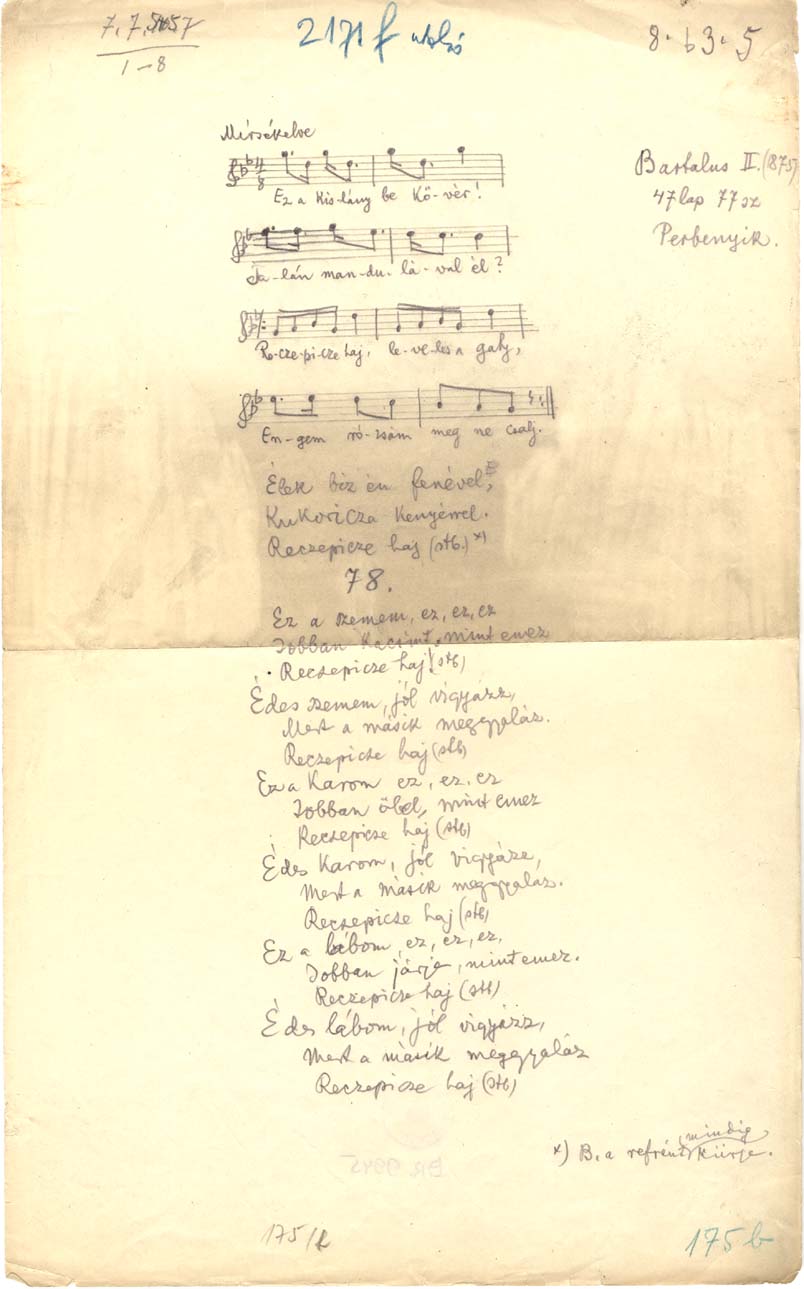 7, 7, 557
1–8
2171f utolsó
8. b3. 5
Mérsékelve
Bartalus II. (875)
47 lap 77 sz
Perbenyik.
4
8
Ez a kis-lány be kö-vér!
Ta-lán man-du-lá-val él?
Re-cze-pi-cze haj, le-ve-les a galy,
En-gem ró-zsám meg ne csalj.
Élek biz én fenével,
Kukoricza kenyérrel.
Reczepicze haj (stb.) x)
78.
Ez a szemem, ez, ez, ez
Jobban kacsint, mint emez
Reczepicze haj! (stb)
Édes szemem, jól vigyázz,
Mert a másik meggyaláz.
Reczepicze haj (stb)
Ez a karom ez, ez, ez
Jobban ölel, mint emez
Reczepicze haj (stb)
Édes karom, jól vigyázz,
Mert a másik meggyaláz.
Reczepicze haj (stb)
Ez a lábom, ez, ez, ez,
Jobban járja, mint emez.
Reczepicze haj (stb)
Édes lábom, jól vigyázz,
Mert a másik meggyaláz
Reczepicze haj (stb)
x) B. a refrént mindig kiírja.
BR 9945
175/b
175 b